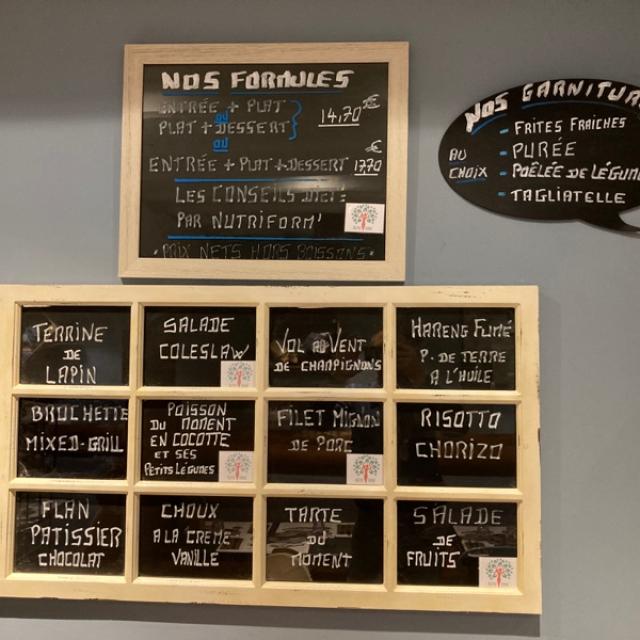 NOS FORMULES
ENTRÉE + PLAT
OU
PLAT + DESSERT
14,70€
OU
ENTRÉE + PLAT + DESSERT 17,70€
LES CONSEILS DIÉT:
PAR NUTRIFORM'
* PRIX NETS HORS BOISSONS *
NOS GARNITUR
AU CHOIX
- FRITES FRAICHES
- PURÉE
- POÊLÉE DE LÉGUME
- TAGLIATELLE
TERRINE
DE
LAPIN
SALADE
COLESLAW
VOL AU VENT
DE CHAMPIGNONS
HARENG FUMÉ
P. DE TERRE
A L'HUILE
BROCHETTE
MIXED-GRILL
POISSON
DU MOMENT
EN COCOTTE
ET SES
PETITS LÉGUMES
FILET MIGNON
DE PORC
RISOTTO
CHORIZO
FLAN
PATISSIER
CHOCOLAT
CHOUX
A LA CRÈME
VANILLE
TARTE
DU
MOMENT
SALADE
DE
FRUITS